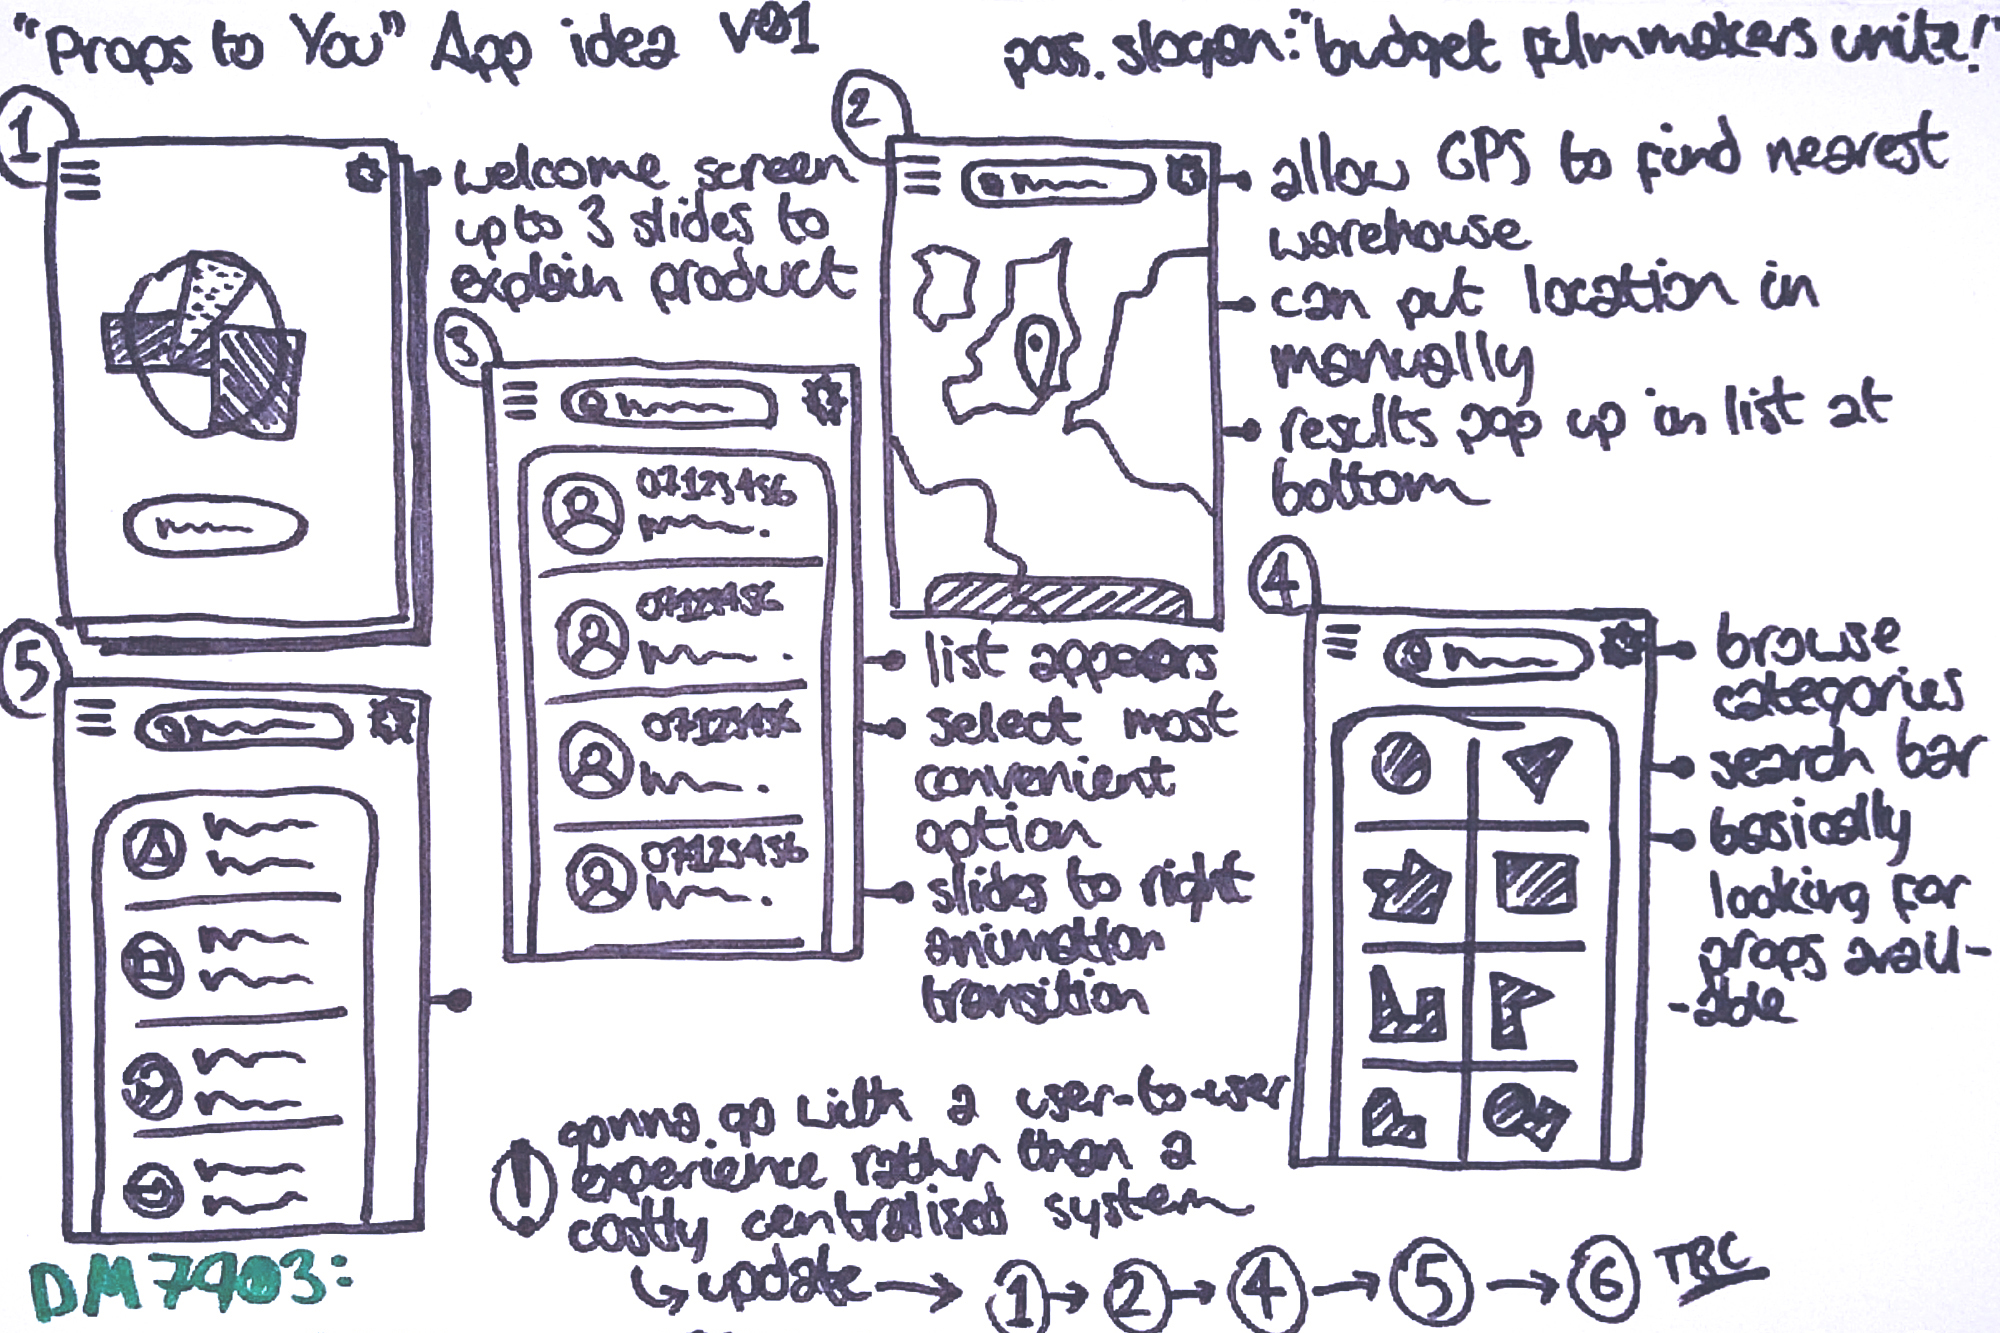 "Props to You" App idea V01
poss. slogan: "budget filmmakers unite!"
1
welcome screen
up to 3 slides to
explain product
2
allow GPS to find nearest
warehouse
can put location in
manually
results pop up in list at
bottom
3
07123456
07123456
07123456
07123456
list appears
select most
convenient
option
slides to right
animation
transition
4
browse
categories
search bar
basically
looking for
props avail-
-able
5
! gonna go with a user-to-user
experience rather than a
costly centralised system
↳ update → 1 → 2 → 4 → 5 → 6 TBC
DM7903: